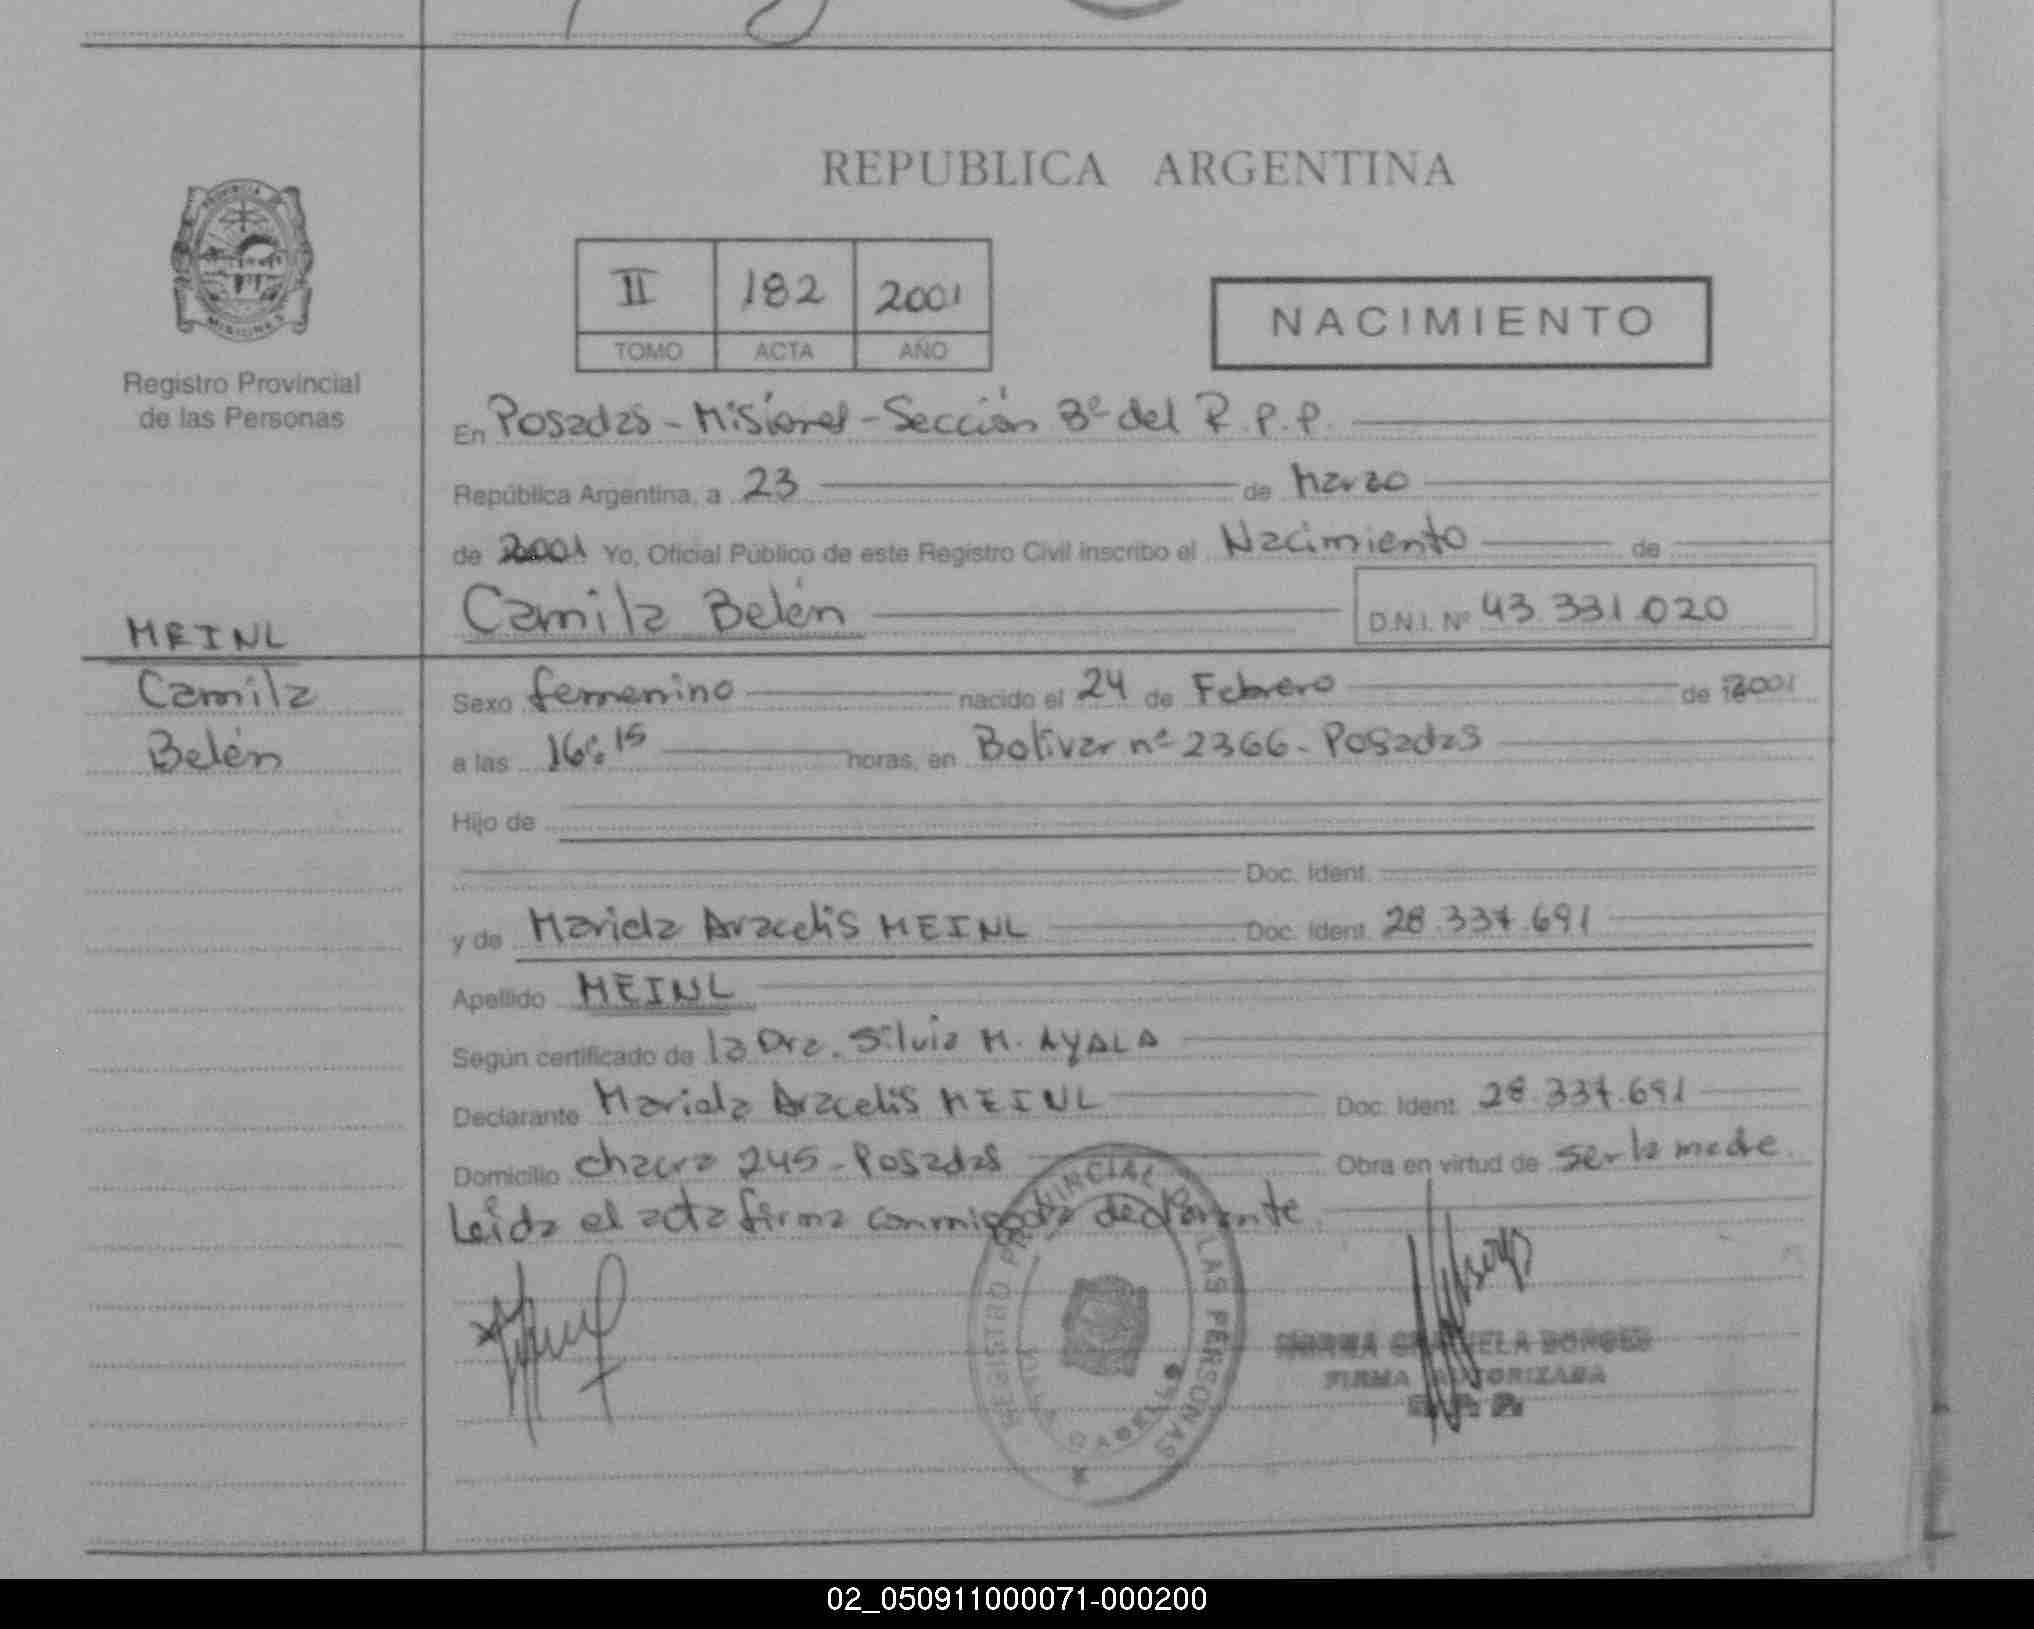 REPUBLICA ARGENTINA
PROVINCIA
MISIONES
Registro Provincial
de las Personas
II 182 2001
TOMO ACTA AÑO
NACIMIENTO
En Posadas - Misiones - Sección 3º del R.P.P.
República Argentina, a 23 de Marzo
de 2001 Yo, Oficial Público de este Registro Civil inscribo el Nacimiento de
Camila Belén D.N.I. Nº 43.331.020
MEINL
Camila
Belén
Sexo femenino nacido el 24 de Febrero de 2001
a las 16:15 horas, en Bolivar nº 2366 - Posadas
Hijo de
Doc. Ident.
y de Mariela Aracelis MEINL Doc. Ident. 28.337.691
Apellido MEINL
Según certificado de la Dra. Silvia M. AYALA
Declarante Mariela Aracelis MEINL Doc. Ident. 28.337.691
Domicilio chacra 245 - Posadas Obra en virtud de ser la madre.
Leida el acta firma conmigo la declarante
REGISTRO PROVINCIAL DE LAS PERSONAS
GRACIELA BORGES
FIRMA AUTORIZADA
R. P. P.
02_050911000071-000200